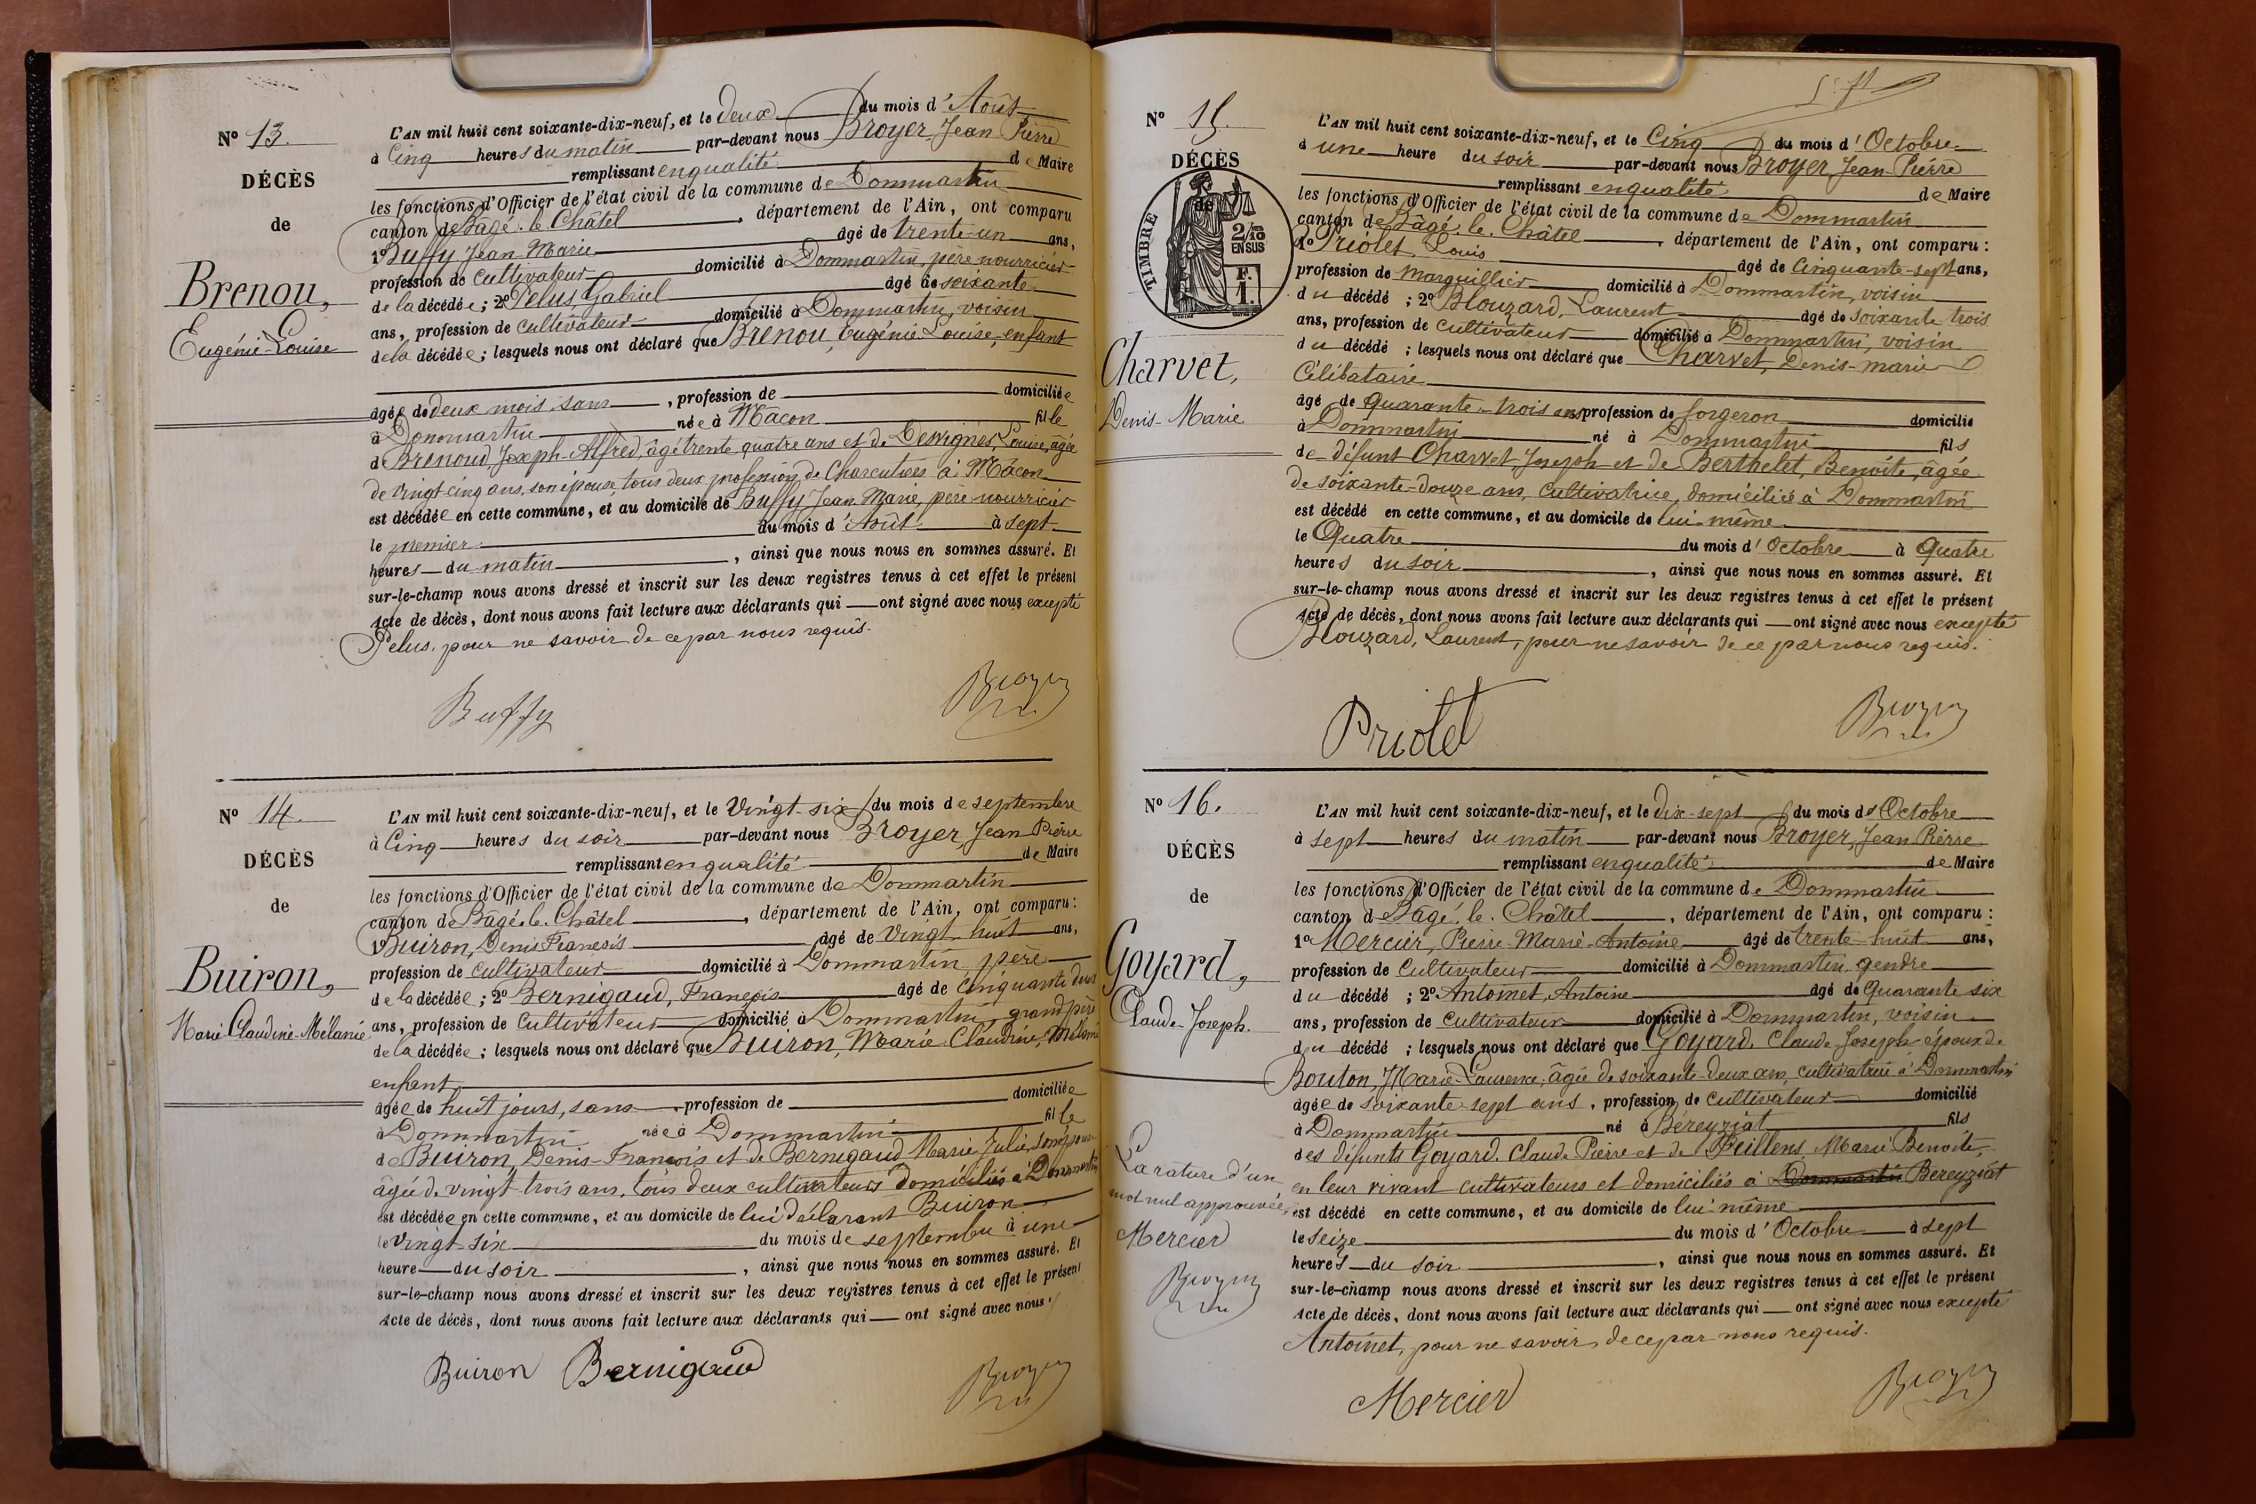 N° 13.
DÉCÈS
de
Brenou,
Eugénie-Louise
L'AN mil huit cent soixante-dix-neuf, et le deux du mois d'Août
à Cinq heures du matin par-devant nous Broyer Jean Pierre
remplissant en qualité de Maire
les fonctions d'Officier de l'état civil de la commune de Dommartin
canton de Bâgé-le-Châtel, département de l'Ain, ont comparu
1° Buffy Jean Marie âgé de trente-un ans,
profession de cultivateur domicilié à Dommartin, père nourricier
de la décédée; 2° Pelus Gabriel âgé de soixante
ans, profession de cultivateur domicilié à Dommartin, voisin
de la décédée; lesquels nous ont déclaré que Brenou, Eugénie Louise, enfant
âgée de deux mois, sans, profession de domiciliée
à Dommartin née à Mâcon fille
de Brenoud Joseph-Alfred, âgé trente quatre ans et de Desvignes, Louise, âgée
de vingt cinq ans, son épouse, tous deux profession de Charcutiers à Mâcon
est décédée en cette commune, et au domicile de Buffy Jean Marie, père nourricier
le premier du mois d'Août à sept
heures du matin, ainsi que nous nous en sommes assuré. Et
sur-le-champ nous avons dressé et inscrit sur les deux registres tenus à cet effet le présent
acte de décès, dont nous avons fait lecture aux déclarants qui ont signé avec nous excepté
Pelus, pour ne savoir de ce par nous requis.
Buffy Broyer
N° 14.
DÉCÈS
de
Buiron,
Marie Claudine-Mélanie
L'AN mil huit cent soixante-dix-neuf, et le vingt-six du mois de septembre
à Cinq heures du soir par-devant nous Broyer Jean Pierre
remplissant en qualité de Maire
les fonctions d'Officier de l'état civil de la commune de Dommartin
canton de Bâgé-le-Châtel, département de l'Ain, ont comparu:
1° Buiron, Denis François âgé de vingt-huit ans,
profession de cultivateur domicilié à Dommartin père
de la décédée; 2° Bernigaud, François âgé de cinquante deux
ans, profession de cultivateur domicilié à Dommartin, grand père
de la décédée; lesquels nous ont déclaré que Buiron, Marie-Claudine, Mélanie
enfant
âgée de huit jours, sans, profession de domiciliée
à Dommartin née à Dommartin fille
de Buiron, Denis-François et de Bernigaud Marie Julie, son épouse
âgée de vingt-trois ans, tous deux cultivateurs domiciliés à Dommartin
est décédée en cette commune, et au domicile de lui déclarant Buiron
le vingt-six du mois de septembre à une
heure du soir, ainsi que nous nous en sommes assuré. Et
sur-le-champ nous avons dressé et inscrit sur les deux registres tenus à cet effet le présent
acte de décès, dont nous avons fait lecture aux déclarants qui ont signé avec nous.
Buiron Bernigaud Broyer
N° 15.
DÉCÈS
de
TIMBRE
2/10
EN SUS
F.
1.
Charvet,
Denis-Marie
L'AN mil huit cent soixante-dix-neuf, et le Cinq du mois d'Octobre
à une heure du soir par-devant nous Broyer, Jean-Pierre
remplissant en qualité de Maire
les fonctions d'Officier de l'état civil de la commune de Dommartin
canton de Bâgé-le-Châtel, département de l'Ain, ont comparu:
1° Priolet, Louis âgé de Cinquante-sept ans,
profession de marguillier domicilié à Dommartin, voisin
du décédé; 2° Blouzard, Laurent âgé de soixante trois
ans, profession de cultivateur domicilié à Dommartin, voisin
du décédé; lesquels nous ont déclaré que Charvet, Denis-marie
Célibataire
âgé de quarante-trois ans profession de forgeron domicilié
à Dommartin né à Dommartin fils
de défunt Charvet Joseph et de Berthelet, Benoîte, âgée
de soixante-douze ans, cultivatrice, domiciliée à Dommartin
est décédé en cette commune, et au domicile de lui-même
le Quatre du mois d'Octobre à Quatre
heures du soir, ainsi que nous nous en sommes assuré. Et
sur-le-champ nous avons dressé et inscrit sur les deux registres tenus à cet effet le présent
acte de décès, dont nous avons fait lecture aux déclarants qui ont signé avec nous excepté
Blouzard, Laurent, pour ne savoir de ce par nous requis.
Priolet Broyer
N° 16.
DÉCÈS
de
Goyard,
Claude-Joseph.
L'AN mil huit cent soixante-dix-neuf, et le dix-sept du mois d'Octobre
à sept heures du matin par-devant nous Broyer, Jean Pierre
remplissant en qualité de Maire
les fonctions d'Officier de l'état civil de la commune de Dommartin
canton de Bâgé-le-Châtel, département de l'Ain, ont comparu:
1° Mercier, Pierre-Marie-Antoine âgé de trente-huit ans,
profession de Cultivateur domicilié à Dommartin gendre
du décédé; 2° Antoinet, Antoine âgé de Quarante six
ans, profession de cultivateur domicilié à Dommartin, voisin
du décédé; lesquels nous ont déclaré que Goyard, Claude-Joseph époux de
Bouton, Marie-Laurence, âgée de soixante-deux ans, cultivatrice à Dommartin
âgée de soixante-sept ans, profession de cultivateur domicilié
à Dommartin né à Béreyziat fils
des défunts Goyard, Claude Pierre et de Feillens, Marie Benoîte,
en leur vivant cultivateurs et domiciliés à Dommartin Bereyziat
est décédé en cette commune, et au domicile de lui-même
le seize du mois d'Octobre à sept
heures du soir, ainsi que nous nous en sommes assuré. Et
sur-le-champ nous avons dressé et inscrit sur les deux registres tenus à cet effet le présent
acte de décès, dont nous avons fait lecture aux déclarants qui ont signé avec nous excepté
Antoinet, pour ne savoir de ce par nous requis.
La rature d'un
mot nul approuvée,
Mercier
Broyer
Mercier Broyer